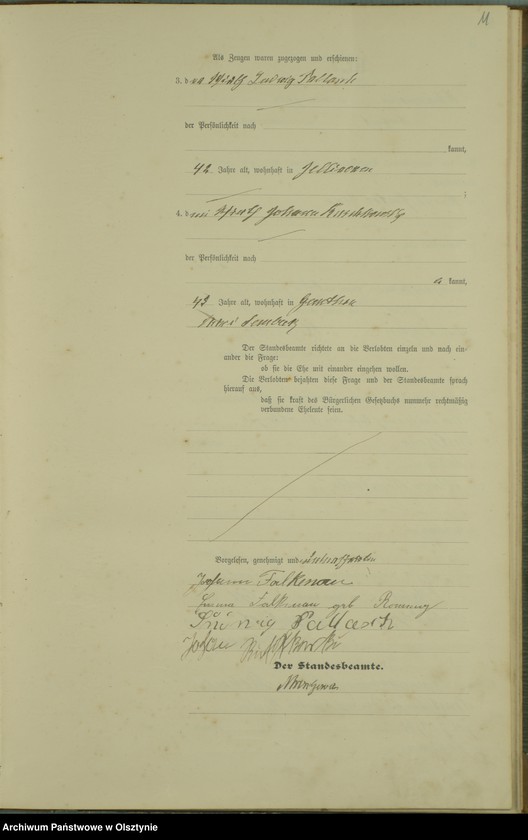 11
Als Zeugen waren zugezogen und erschienen:
3. der Ludwig Pallasch
der Persönlichkeit nach
kannt,
42 Jahre alt, wohnhaft in
;
4. d Johann
der Persönlichkeit nach
a kannt,
43 Jahre alt, wohnhaft in
Der Standesbeamte richtete an die Verlobten einzeln und nach ein-
ander die Frage:
ob sie die Ehe mit einander eingehen wollen.
Die Verlobten bejahten diese Frage und der Standesbeamte sprach
hierauf aus,
daß sie kraft des Bürgerlichen Gesetzbuchs nunmehr rechtmäßig
verbundene Eheleute seien.
Vorgelesen, genehmigt und unterschrieben
Johann Falkenau
Emma Falkenau geb
Ludwig Pallasch
Johann
Der Standesbeamte.
Archiwum Państwowe w Olsztynie